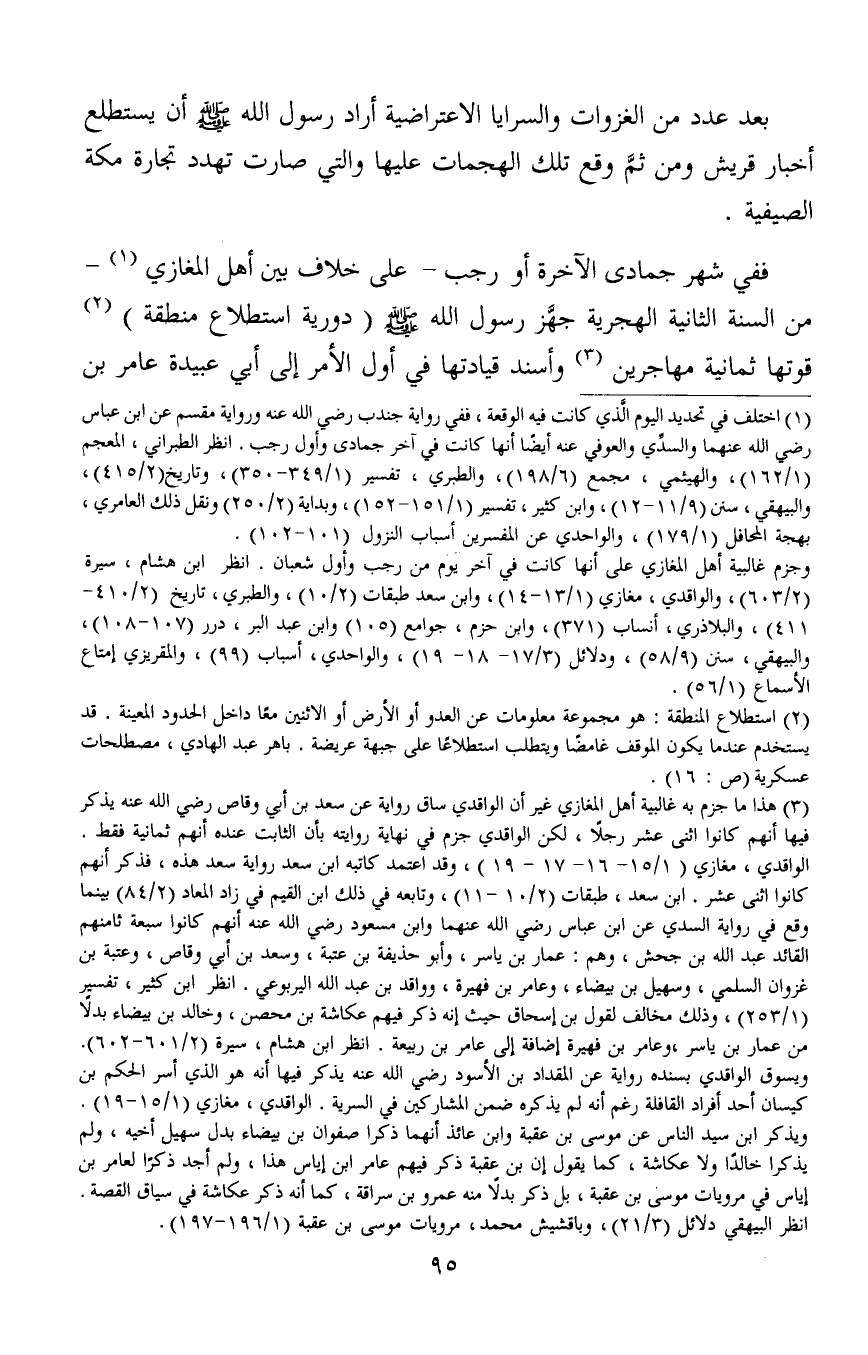 بعد عدد من الغزوات والسرايا الاعتراضية أراد رسول الله ﷺ أن يستطلع
أخبار قريش ومن ثمَّ وقع تلك الهجمات عليها والتي صارت تهدد تجارة مكة
الصيفية .
ففي شهر جمادى الآخرة أو رجب – على خلاف بين أهل المغازي (١) –
من السنة الثانية الهجرية جهَّز رسول الله ﷺ ( دورية استطلاع منطقة ) (٢)
قوتها ثمانية مهاجرين (٣) وأسند قيادتها في أول الأمر إلى أبي عبيدة عامر بن
(١) اختلف في تحديد اليوم الَّذي كانت فيه الوقعة ، ففي رواية جندب رضي الله عنه ورواية مقسم عن ابن عباس
رضي الله عنهما والسدِّي والعوفي عنه أيضًا أنها كانت في آخر جمادى وأول رجب . انظر الطبراني ، المعجم
(١٦٢/١)، والهيثمي ، مجمع (١٩٨/٦)، والطبري ، تفسير (٣٤٩/١-٣٥٠)، وتاريخ(٤١٥/٢)،
والبيهقي ، سنن (١١/٩-١٢) ، وابن كثير ، تفسير (١٥١/١-١٥٢) ، وبداية (٢٥٠/٢) ونقل ذلك العامري ،
بهجة المحافل (١٧٩/١) ، والواحدي عن المفسرين أسباب النزول (١٠١-١٠٢) .
وجزم غالبية أهل المغازي على أنها كانت في آخر يوم من رجب وأول شعبان . انظر ابن هشام ، سيرة
(٦٠٣/٢) ، والواقدي ، مغازي (١٣/١-١٤) ، وابن سعد طبقات (١٠/٢) ، والطبري ، تاريخ (٤١٠/٢-
٤١١) ، والبلاذري ، أنساب (٣٧١) ، وابن حزم ، جوامع (١٠٥) وابن عبد البر ، درر (١٠٧-١٠٨)،
والبيهقي ، سنن (٥٨/٩) ، ودلائل (١٧/٣- ١٨- ١٩) ، والواحدي ، أسباب (٩٩) ، والمقريزي إمتاع
الأسماع (٥٦/١) .
(٢) استطلاع المنطقة : هو مجموعة معلومات عن العدو أو الأرض أو الاثنين معًا داخل الحدود المعينة . قد
يستخدم عندما يكون الموقف غامضًا ويتطلب استطلاعًا على جبهة عريضة . باهر عبد الهادي ، مصطلحات
عسكرية (ص : ١٦) .
(٣) هذا ما جزم به غالبية أهل المغازي غير أن الواقدي ساق رواية عن سعد بن أبي وقاص رضي الله عنه يذكر
فيها أنهم كانوا اثنى عشر رجلًا ، لكن الواقدي جزم في نهاية روايته بأن الثابت عنده أنهم ثمانية فقط .
الواقدي ، مغازي ( ١٥/١- ١٦- ١٧ - ١٩ ) ، وقد اعتمد كاتبه ابن سعد رواية سعد هذه ، فذكر أنهم
كانوا اثنى عشر . ابن سعد ، طبقات (١٠/٢ -١١) ، وتابعه في ذلك ابن القيم في زاد المعاد (٨٤/٢) بينما
وقع في رواية السدي عن ابن عباس رضي الله عنهما وابن مسعود رضي الله عنه أنهم كانوا سبعة ثامنهم
القائد عبد الله بن جحش ، وهم : عمار بن ياسر ، وأبو حذيفة بن عتبة ، وسعد بن أبي وقاص ، وعتبة بن
غزوان السلمي ، وسهيل بن بيضاء ، وعامر بن فهيرة ، وواقد بن عبد الله اليربوعي . انظر ابن كثير ، تفسير
(٢٥٣/١) ، وذلك مخالف لقول بن إسحاق حيث إنه ذكر فيهم عكاشة بن محصن ، وخالد بن بيضاء بدلًا
من عمار بن ياسر ،وعامر بن فهيرة إضافة إلى عامر بن ربيعة . انظر ابن هشام ، سيرة (٦٠١/٢-٦٠٢).
ويسوق الواقدي بسنده رواية عن المقداد بن الأسود رضي الله عنه يذكر فيها أنه هو الذي أسر الحكم بن
كيسان أحد أفراد القافلة رغم أنه لم يذكره ضمن المشاركين في السرية . الواقدي ، مغازي (١٥/١-١٩) .
ويذكر ابن سيد الناس عن موسى بن عقبة وابن عائذ أنهما ذكرا صفوان بن بيضاء بدل سهيل أخيه ، ولم
يذكرا خالدًا ولا عكاشة ، كما يقول إن بن عقبة ذكر فيهم عامر ابن إياس هذا ، ولم أجد ذكرًا لعامر بن
إياس في مرويات موسى بن عقبة ، بل ذكر بدلًا منه عمرو بن سراقة ، كما أنه ذكر عكاشة في سياق القصة .
انظر البيهقي دلائل (٢١/٣) ، وباقشيش محمد ، مرويات موسى بن عقبة (١٩٦/١-١٩٧) .
٩٥